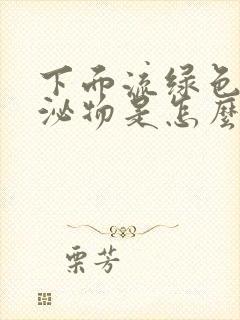 下面流绿色
泌物是怎麽
栗芳